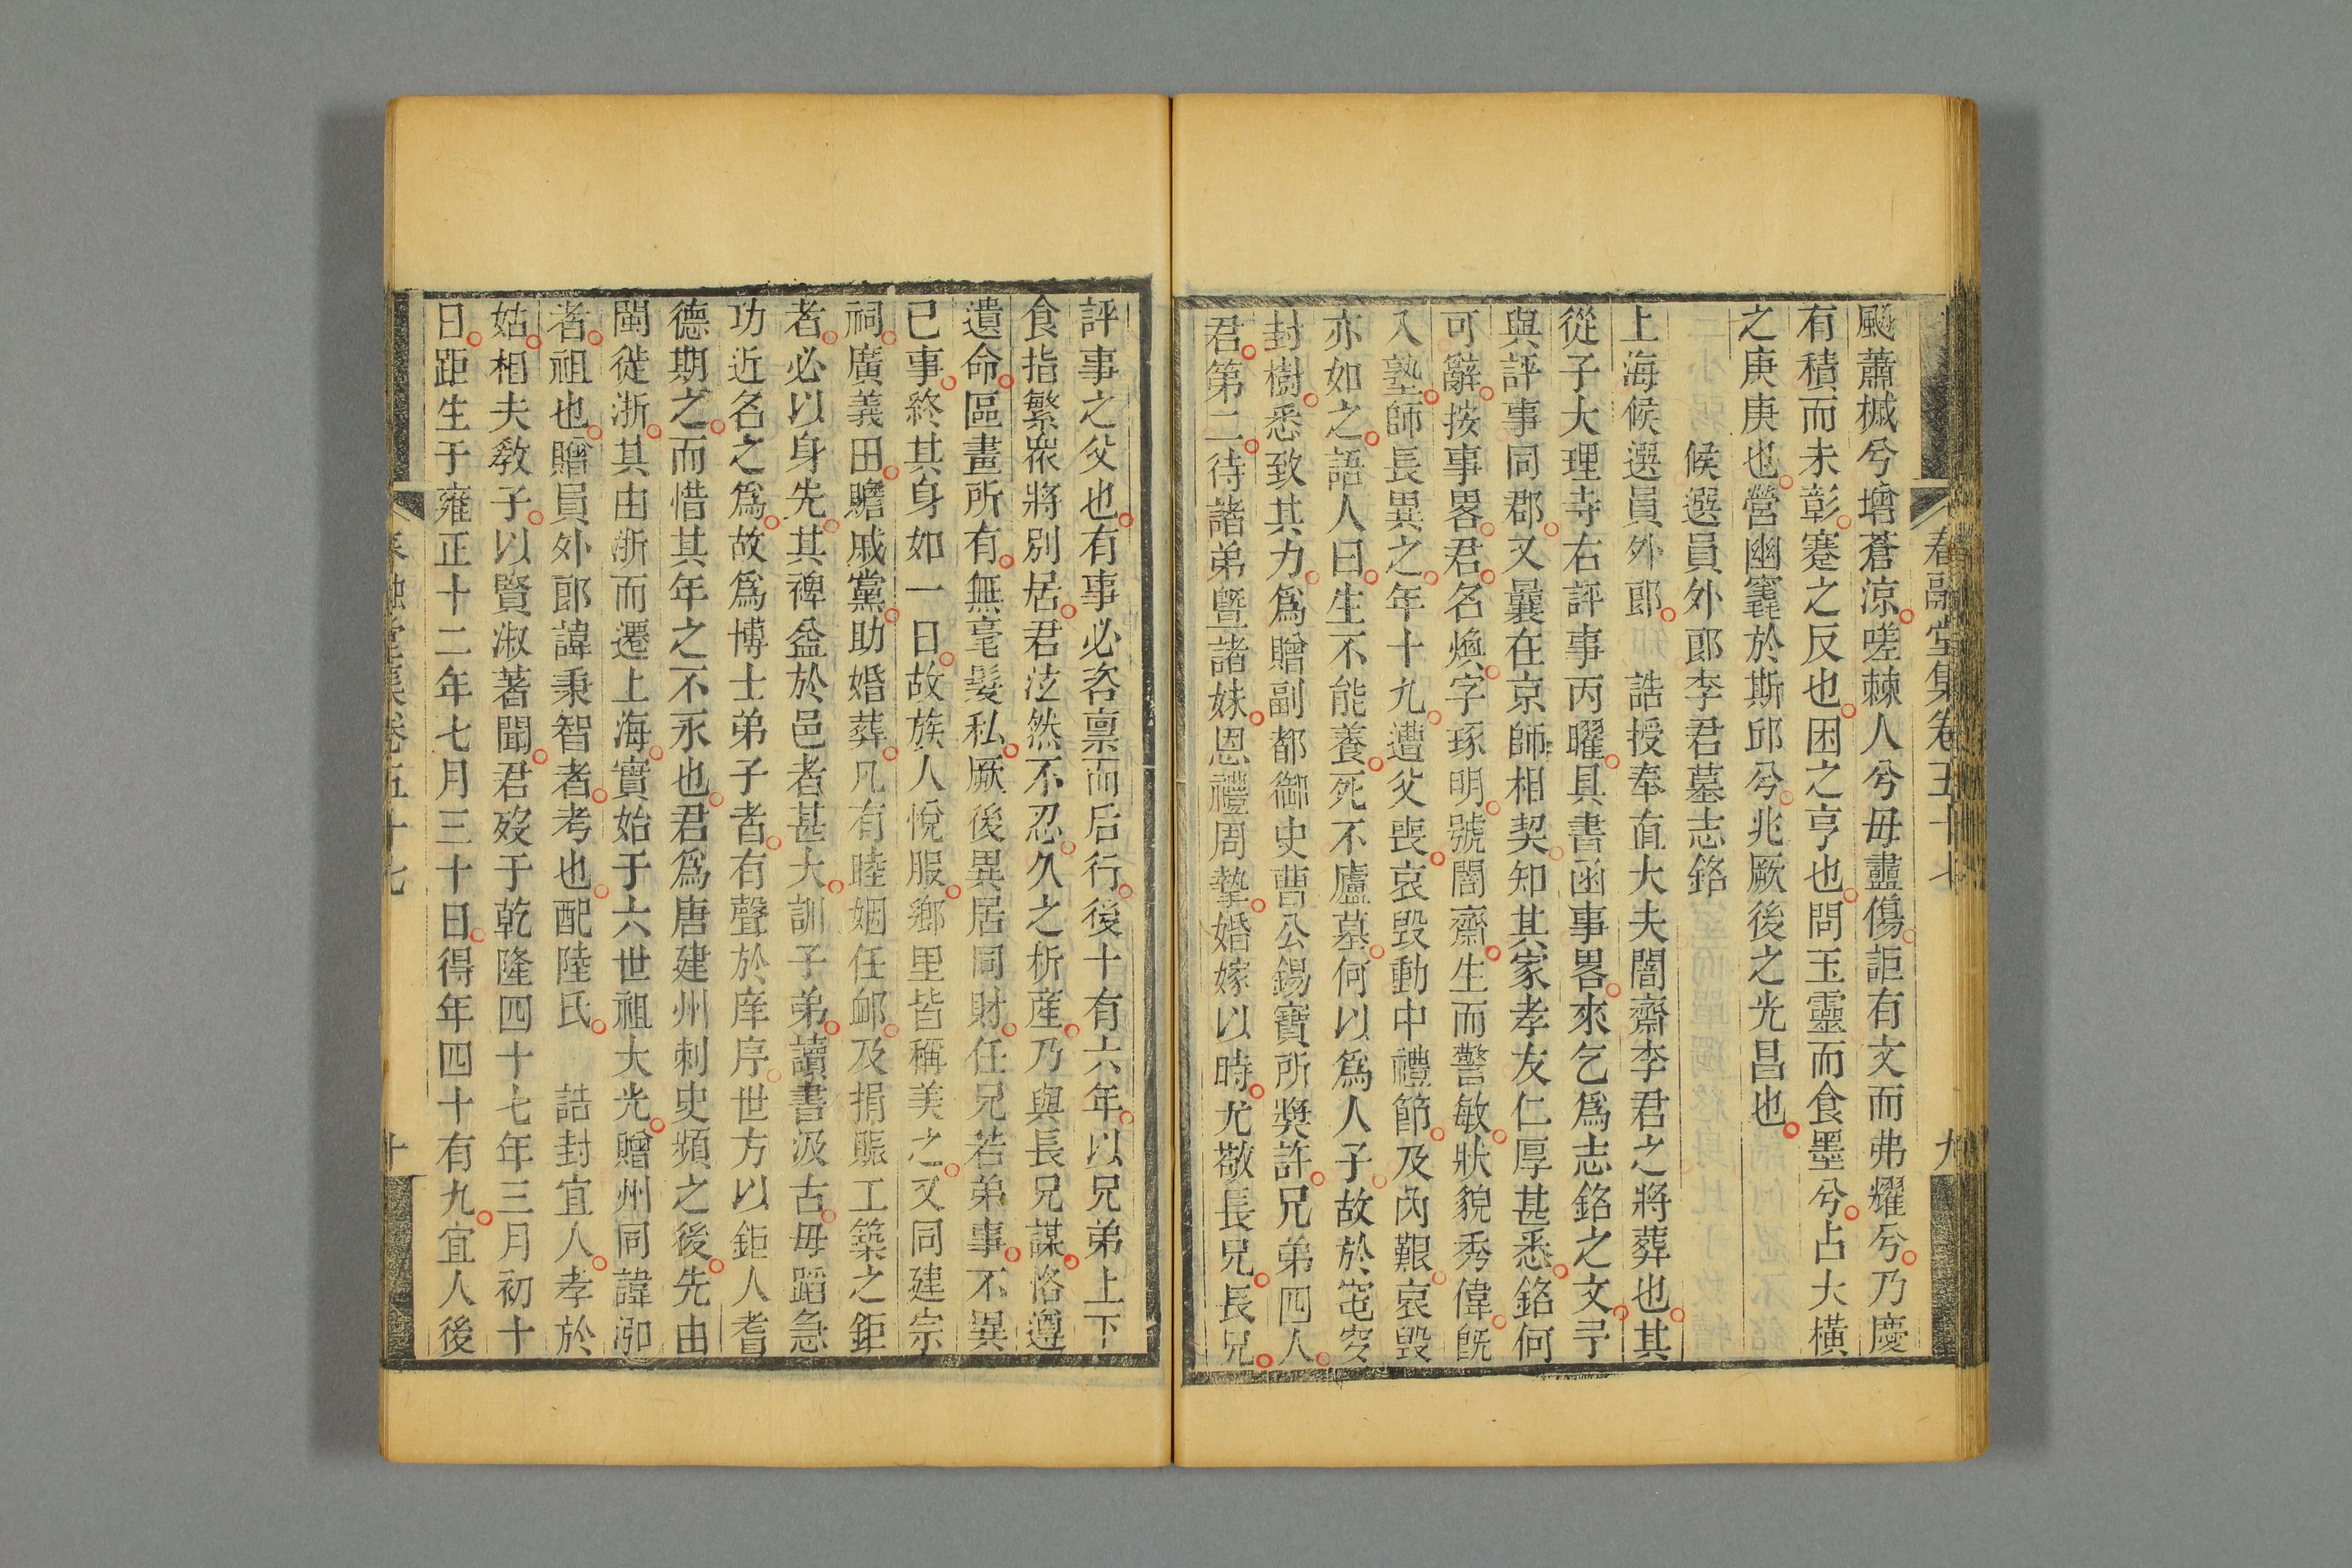 春融堂集卷五十七
九
颸蕭槭兮壿蒼涼嗟棘人兮毋衋傷詎有文而弗耀兮乃慶
有積而未彰蹇之反也困之亨也問玉靈而食墨兮占大橫
之庚庚也營幽竁於斯邱兮兆厥後之光昌也
候選員外郎李君墓志銘
上海候選員外郎 誥授奉直大夫闇齋李君之將葬也其
從子大理寺右評事丙曜具書函事畧來乞爲志銘之文予
與評事同郡又曩在京師相契知其家孝友仁厚甚悉銘何
可辭按事畧君名煥字琢明號闇齋生而警敏狀貌秀偉旣
入塾師長異之年十九遭父喪哀毀動中禮節及內艱哀毀
亦如之語人曰生不能養死不廬墓何以爲人子故於窀穸
封樹悉致其力爲贈副都御史曹公錫寶所奬許兄弟四人
君第二待諸弟曁諸妹恩禮周摯婚嫁以時尤敬長兄長兄
評事之父也有事必咨禀而后行後十有六年以兄弟上下
食指繁衆將別居君泫然不忍久之析產乃與長兄謀恪遵
遺命區畫所有無毫髮私厥後異居同財任兄若弟事不異
已事終其身如一日故族人悅服鄉里皆稱美之又同建宗
祠廣義田贍戚黨助婚葬凡有睦姻任䘏及捐賑工築之鉅
者必以身先其裨益於邑者甚大訓子弟讀書汲古毋蹈急
功近名之爲故爲博士弟子者有聲於庠序世方以鉅人耆
德期之而惜其年之不永也君爲唐建州刺史頻之後先由
閩徙浙其由浙而遷上海實始于六世祖大光贈州同諱泖
者祖也贈員外郎諱秉智者考也配陸氏 誥封宜人孝於
姑相夫敎子以賢淑著聞君歿于乾隆四十七年三月初十
日距生于雍正十二年七月三十日得年四十有九宜人後
春融堂集卷五十七
十